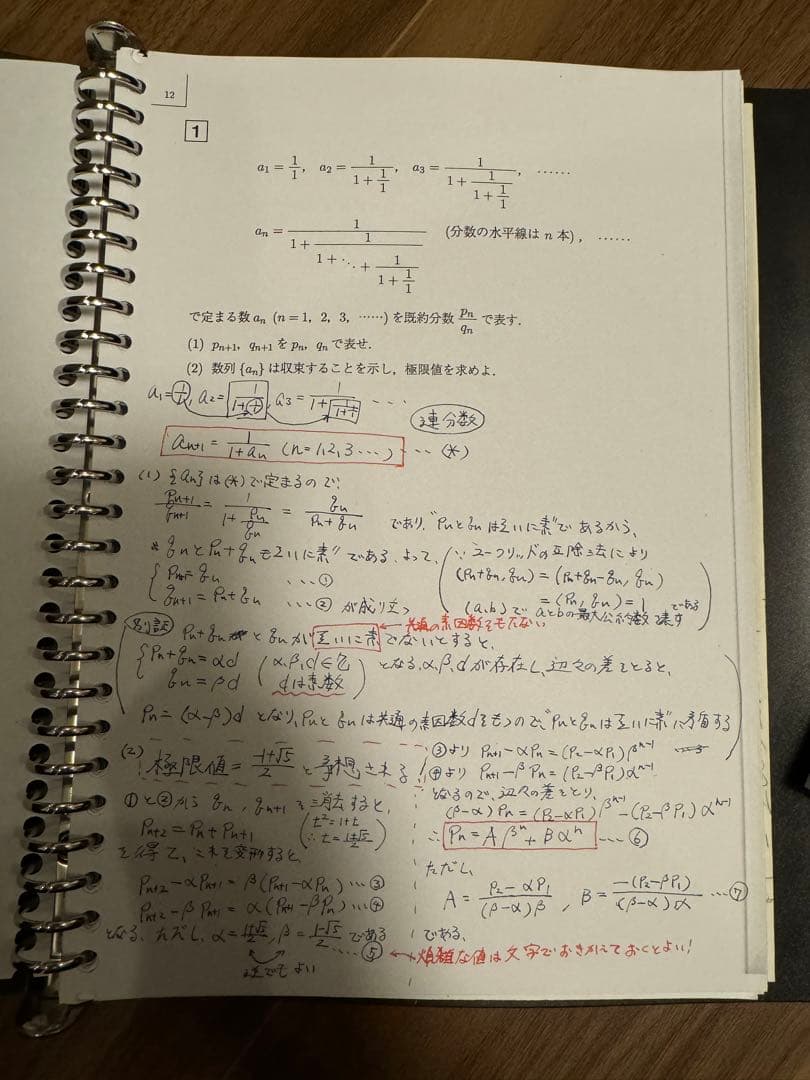 12
1
a₁ = 1/1, a₂ = 1/(1 + 1/1), a₃ = 1/(1 + 1/(1 + 1/1)), ……
aₙ = 1/(1 + 1/(1 + ⋱ + 1/(1 + 1/1))) (分数の水平線は n 本), ……
で定まる数 aₙ (n = 1, 2, 3, ……) を既約分数 pₙ/qₙ で表す.
(1) pₙ₊₁, qₙ₊₁ を pₙ, qₙ で表せ.
(2) 数列 {aₙ} は収束することを示し, 極限値を求めよ.
a₁ = 1/1, a₂ = 1/(1+1/1), a₃ = 1/(1+1/(1+1/1)) ・・・
連分数
aₙ₊₁ = 1/(1+aₙ) (n=1,2,3…) … (*)
(1) {aₙ} は (*) で定まるので、
Pₙ₊₁/qₙ₊₁ = 1/(1+Pₙ/qₙ) = qₙ/(Pₙ+qₙ) であり、"Pₙとqₙは互いに素"であるから、
"qₙとPₙ+qₙも互いに素"である、よって、
∵ユークリッドの互除法により
Pₙ₊₁ = qₙ …①
(Pₙ+qₙ, qₙ) = (Pₙ+qₙ−qₙ, qₙ)
qₙ₊₁ = Pₙ+qₙ …② が成り立つ
= (Pₙ, qₙ) = 1 である
(a,b)でaとbの最大公約数を表す
共通の素因数をもたない
別証 Pₙ+qₙ と qₙ が互いに素でないとすると、
Pₙ+qₙ = αd
qₙ = βd
(α,β,d∈Z
dは素数)
となる α,β,d が存在し、辺々の差をとると、
Pₙ = (α−β)d となり、Pₙとqₙは共通の素因数dをもつので、"Pₙとqₙは互いに素"に矛盾する
(2) 極限値 = (−1+√5)/2 と予想される!
①と②から qₙ, qₙ₊₁ を消去すると、
Pₙ₊₂ = Pₙ + Pₙ₊₁
(t²=1+t
∴ t = (1±√5)/2)
を得て、これを変形すると、
Pₙ₊₂ − αPₙ₊₁ = β(Pₙ₊₁ − αPₙ) …③
Pₙ₊₂ − βPₙ₊₁ = α(Pₙ₊₁ − βPₙ) …④
となる、ただし、α = (1+√5)/2, β = (1−√5)/2 である …⑤
逆でもよい
③より Pₙ₊₁ − αPₙ = (P₂ − αP₁)βⁿ⁻¹
④より Pₙ₊₁ − βPₙ = (P₂ − βP₁)αⁿ⁻¹
となるので、辺々の差をとり、
(β−α)Pₙ = (P₂−αP₁)βⁿ⁻¹ − (P₂−βP₁)αⁿ⁻¹
∴ Pₙ = Aβⁿ + Bαⁿ …⑥
ただし、
A = (P₂−αP₁)/((β−α)β), B = −(P₂−βP₁)/((β−α)α) …⑦
である、
← 煩雑な値は文字でおきかえておくとよい!